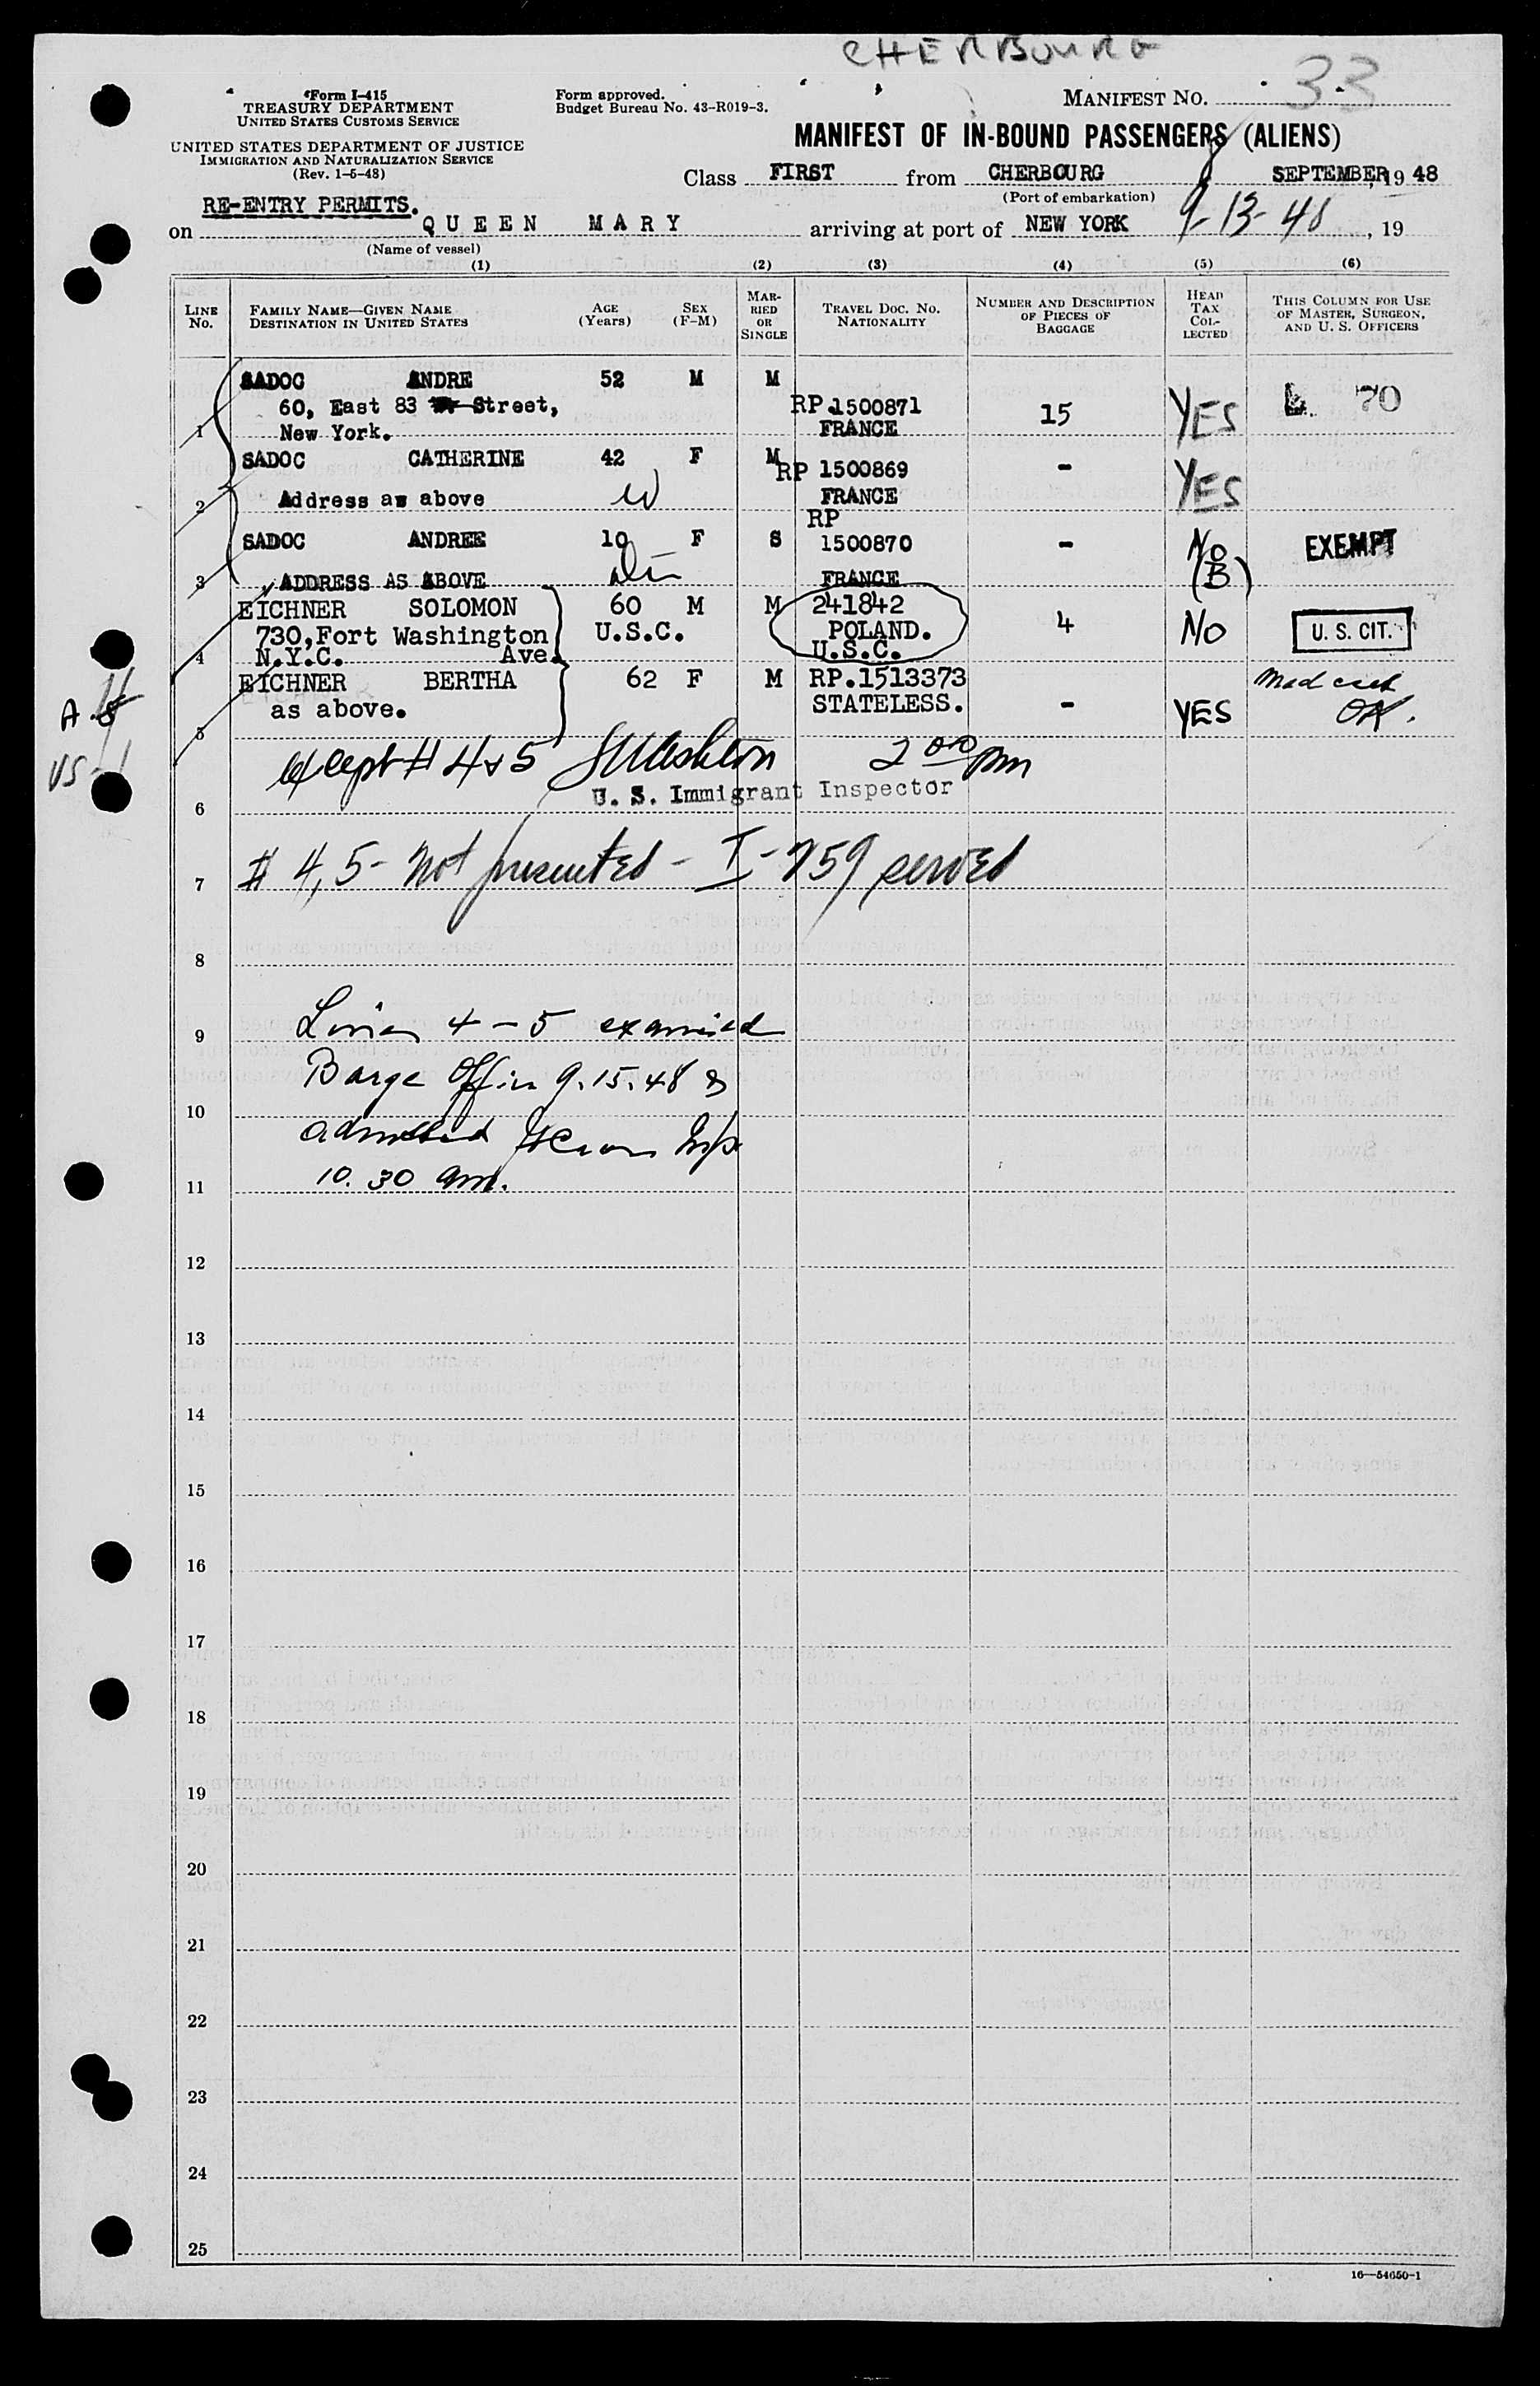 CHERBOURG
Form I-415
TREASURY DEPARTMENT
UNITED STATES CUSTOMS SERVICE
Form approved.
Budget Bureau No. 43-R019-3.
MANIFEST NO. 33
UNITED STATES DEPARTMENT OF JUSTICE
IMMIGRATION AND NATURALIZATION SERVICE
(Rev. 1-5-48)
MANIFEST OF IN-BOUND PASSENGERS (ALIENS)
Class FIRST from CHERBOURG SEPTEMBER, 19 48
(Port of embarkation)
RE-ENTRY PERMITS.
on QUEEN MARY arriving at port of NEW YORK 9-13-48, 19
(Name of vessel)
(1) (2) (3) (4) (5) (6)
LINE NO. FAMILY NAME—GIVEN NAME DESTINATION IN UNITED STATES AGE (Years) SEX (F-M) MARRIED OR SINGLE TRAVEL DOC. NO. NATIONALITY NUMBER AND DESCRIPTION OF PIECES OF BAGGAGE HEAD TAX COLLECTED THIS COLUMN FOR USE OF MASTER, SURGEON, AND U. S. OFFICERS
SADOC ANDRE 52 M M
60, East 83 Street, RP.1500871 15 YES 70
1 New York. FRANCE
SADOC CATHERINE 42 F M
RP 1500869 - YES
2 Address as above W FRANCE
RP
SADOC ANDREE 10 F S 1500870 - No (B) EXEMPT
3 ADDRESS AS ABOVE FRANCE
EICHNER SOLOMON 60 M M 241842
730, Fort Washington U.S.C. POLAND. 4 NO U. S. CIT.
4 N.Y.C. Ave. U.S.C.
EICHNER BERTHA 62 F M RP.1513373 Med cert
as above. STATELESS. - YES OK.
5
A
US-1
except # 4 & 5 2 00 pm
U. S. Immigrant Inspector
6
# 4, 5 - Not presented - I-259 served
7
8
Lines 4 - 5 examined
9
Barge Office 9.15.48 &
10
admitted Insp
10.30 am.
11
12
13
14
15
16
17
18
19
20
21
22
23
24
25
16—54650-1